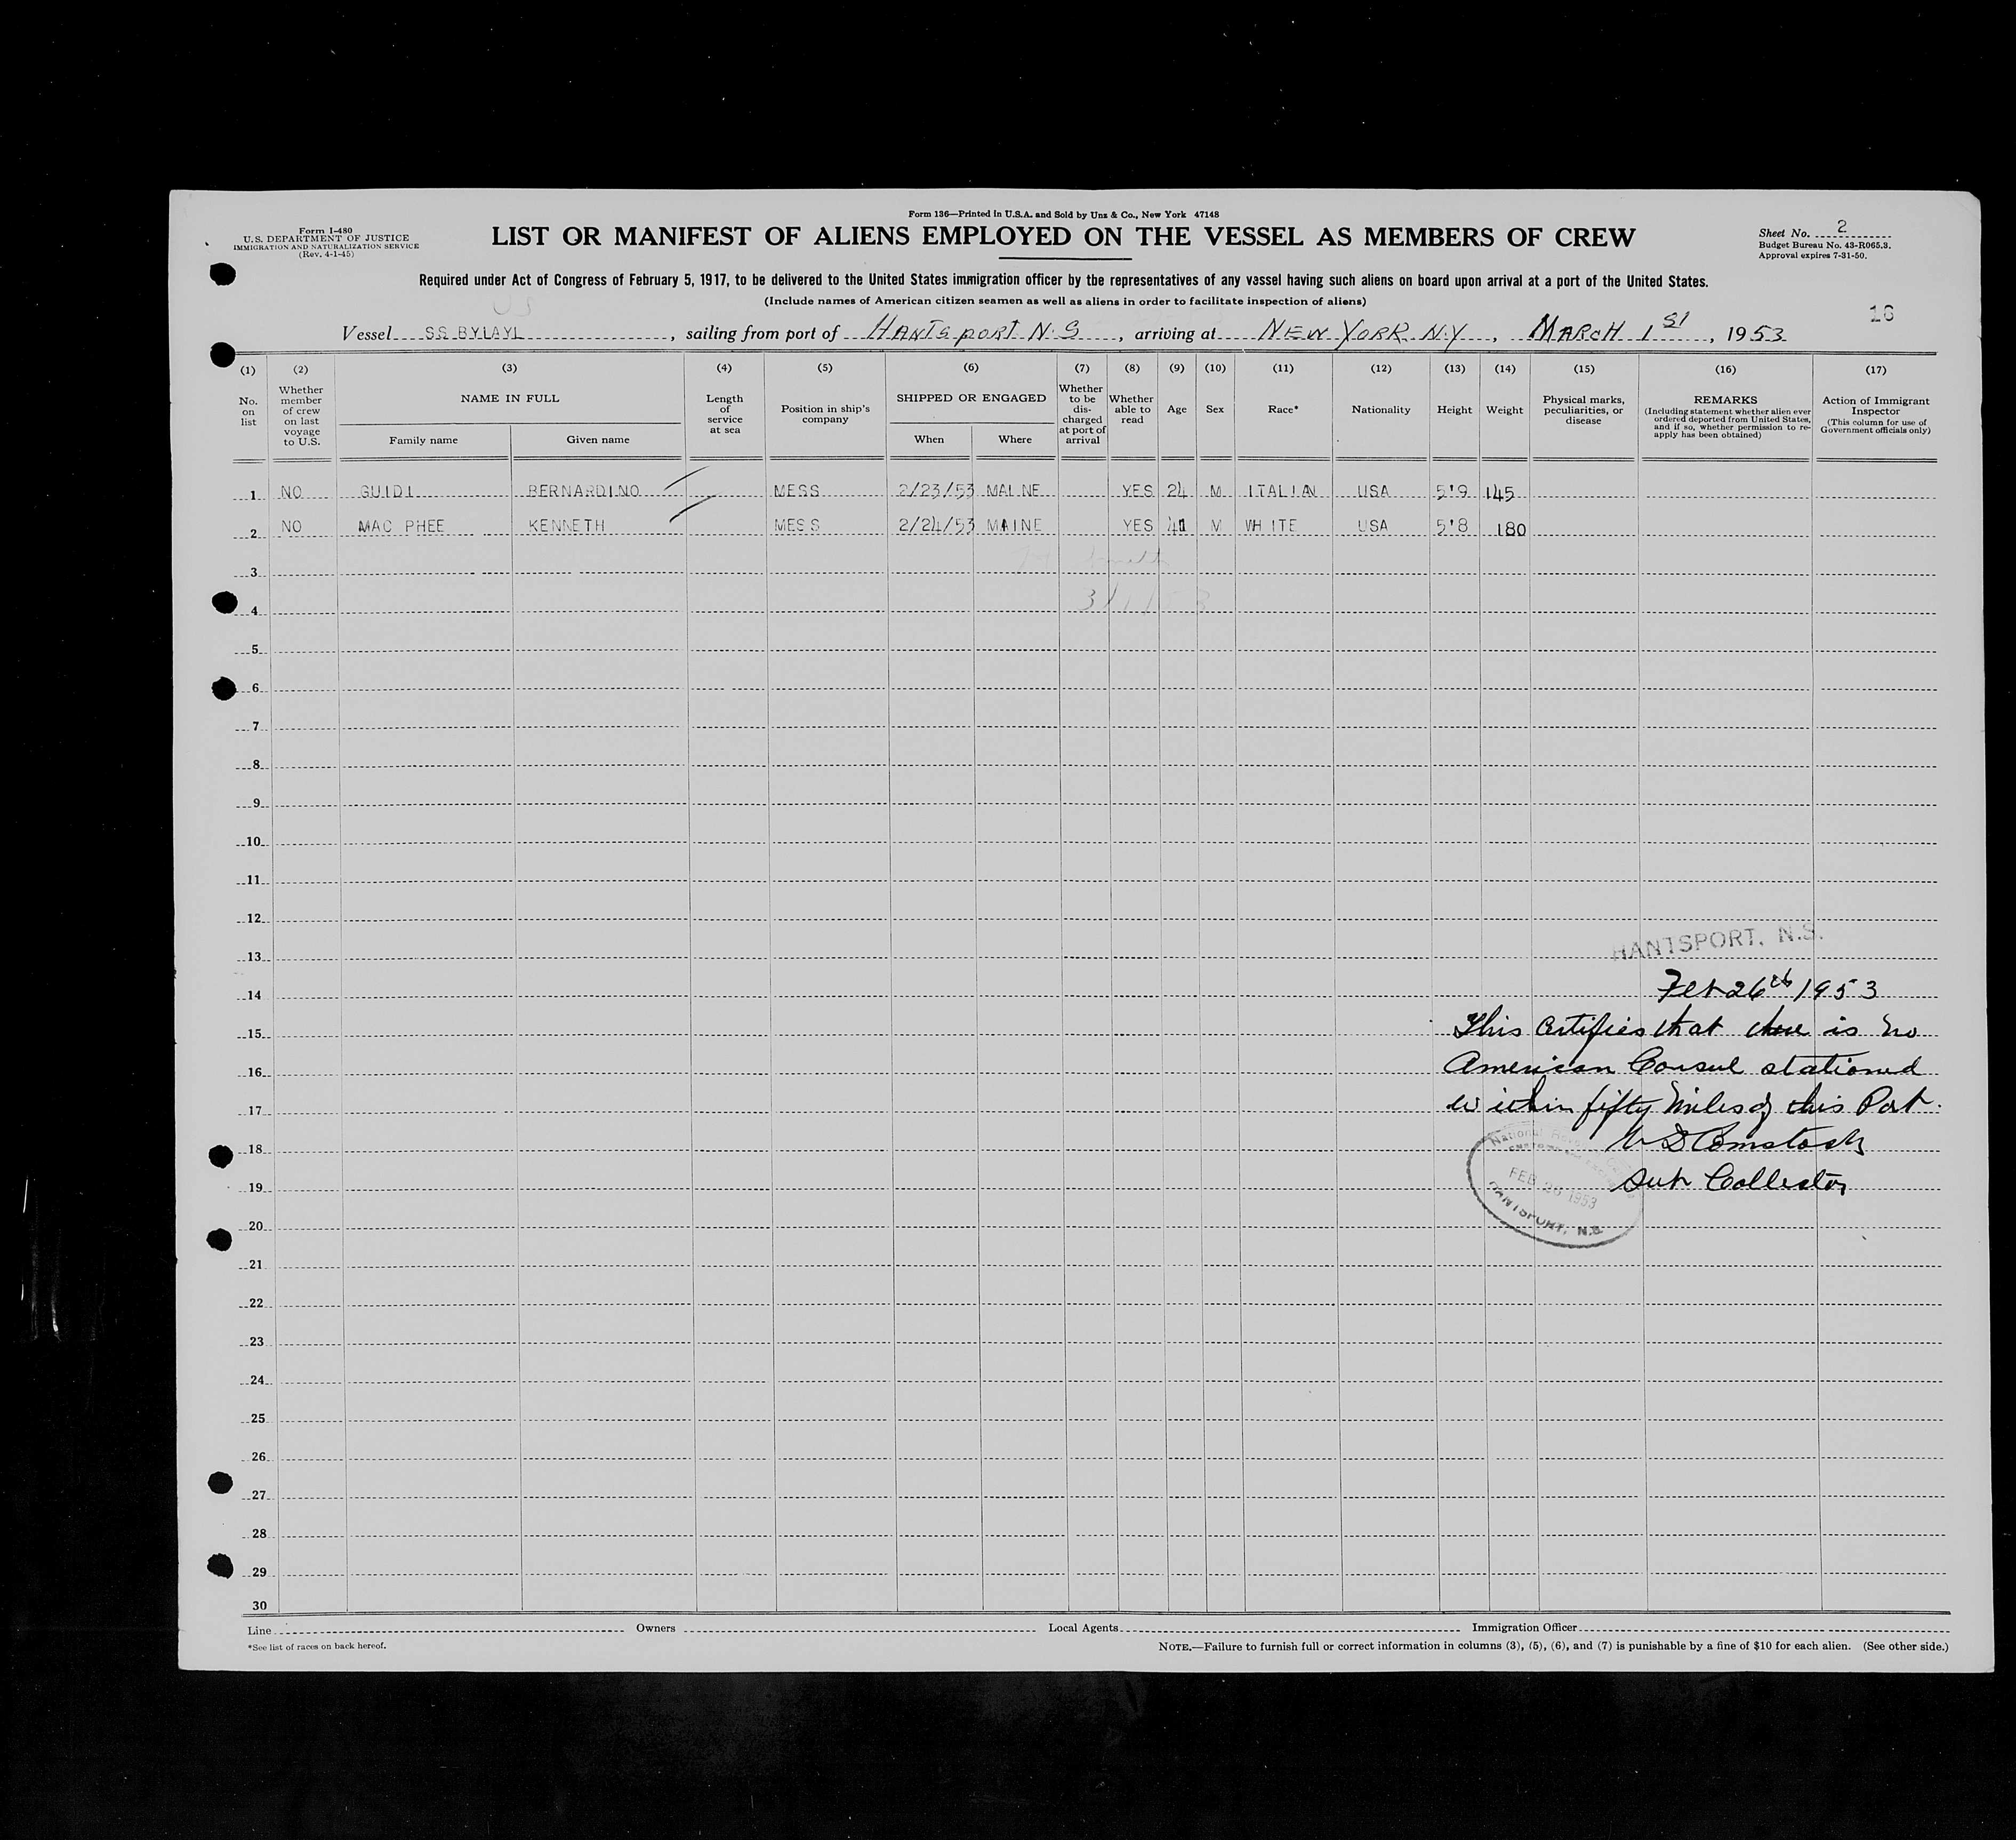 Form 136—Printed in U.S.A. and Sold by Unz & Co., New York 47148
Form I-480
U.S. DEPARTMENT OF JUSTICE
IMMIGRATION AND NATURALIZATION SERVICE
(Rev. 4-1-45)
LIST OR MANIFEST OF ALIENS EMPLOYED ON THE VESSEL AS MEMBERS OF CREW
Sheet No. 2
Budget Bureau No. 43-R065.3.
Approval expires 7-31-50.
Required under Act of Congress of February 5, 1917, to be delivered to the United States immigration officer by the representatives of any vessel having such aliens on board upon arrival at a port of the United States.
(Include names of American citizen seamen as well as aliens in order to facilitate inspection of aliens)
US
16
Vessel SS BYLAYL, sailing from port of HANTSPORT N.S, arriving at NEW YORK N.Y, MARCH 1ST, 1953
(1) (2) (3) (4) (5) (6) (7) (8) (9) (10) (11) (12) (13) (14) (15) (16) (17)
No. on list
Whether member of crew on last voyage to U.S.
NAME IN FULL
Family name
Given name
Length of service at sea
Position in ship's company
SHIPPED OR ENGAGED
When
Where
Whether to be dis-charged at port of arrival
Whether able to read
Age
Sex
Race*
Nationality
Height
Weight
Physical marks, peculiarities, or disease
REMARKS
(Including statement whether alien ever ordered deported from United States, and if so, whether permission to re-apply has been obtained)
Action of Immigrant Inspector
(This column for use of Government officials only)
1 NO GUIDI BERNARDINO MESS 2/23/53 MAINE YES 24 M ITALIAN USA 5'9 145
2 NO MAC PHEE KENNETH MESS 2/24/53 MAINE YES 41 M WHITE USA 5'8 180
3
4 3/1/53
5
6
7
8
9
10
11
12
13 HANTSPORT, N.S.
14 Feb 26th 1953
15 This Certifies that there is no
16 American Consul stationed
17 within fifty miles of this Port.
18 Comstock
19 Sub Collector
FEB 26 1953
HANTSPORT, N.S.
20
21
22
23
24
25
26
27
28
29
30
Line Owners Local Agents Immigration Officer
*See list of races on back hereof.
NOTE.—Failure to furnish full or correct information in columns (3), (5), (6), and (7) is punishable by a fine of $10 for each alien. (See other side.)